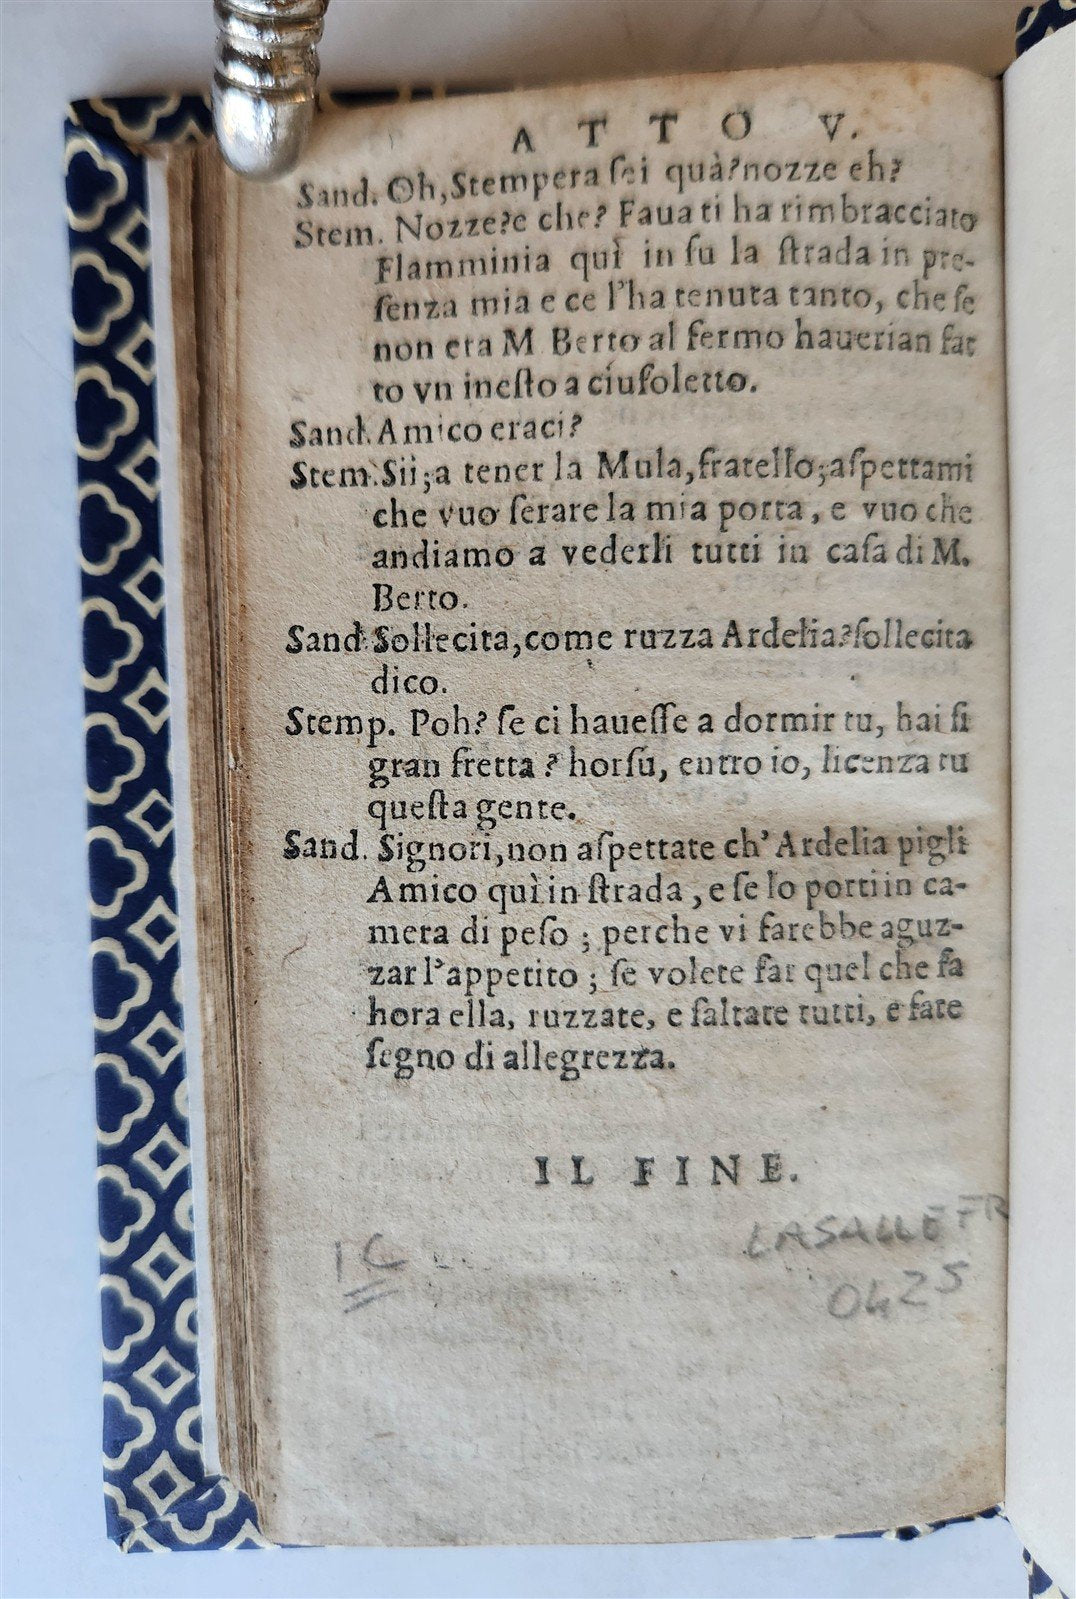 ATTO V.
Sand. Oh, Stempera ſei quà? nozze eh?
Stem. Nozze? e che? Faua ti ha rimbracciato
Flamminia quì in ſu la ſtrada in pre-
ſenza mia e ce l'ha tenuta tanto, che ſe
non era M Berto al fermo hauerian fat
to vn ineſto a ciufoletto.
Sand. Amico eraci?
Stem. Sii; a tener la Mula, fratello; aſpettami
che vuo ſerare la mia porta, e vuo che
andiamo a vederli tutti in caſa di M.
Berto.
Sand. Sollecita, come ruzza Ardelia? ſollecita
dico.
Stemp. Poh? ſe ci haueſſe a dormir tu, hai ſi
gran fretta? horſu, entro io, licenza tu
queſta gente.
Sand. Signori, non aſpettate ch' Ardelia pigli
Amico quì in ſtrada, e ſe lo porti in ca-
mera di peſo; perche vi farebbe aguz-
zar l'appetito; ſe volete far quel che fa
hora ella, ruzzate, e ſaltate tutti, e fate
ſegno di allegrezza.
IL FINE.
IC
LASALLE FR
0425